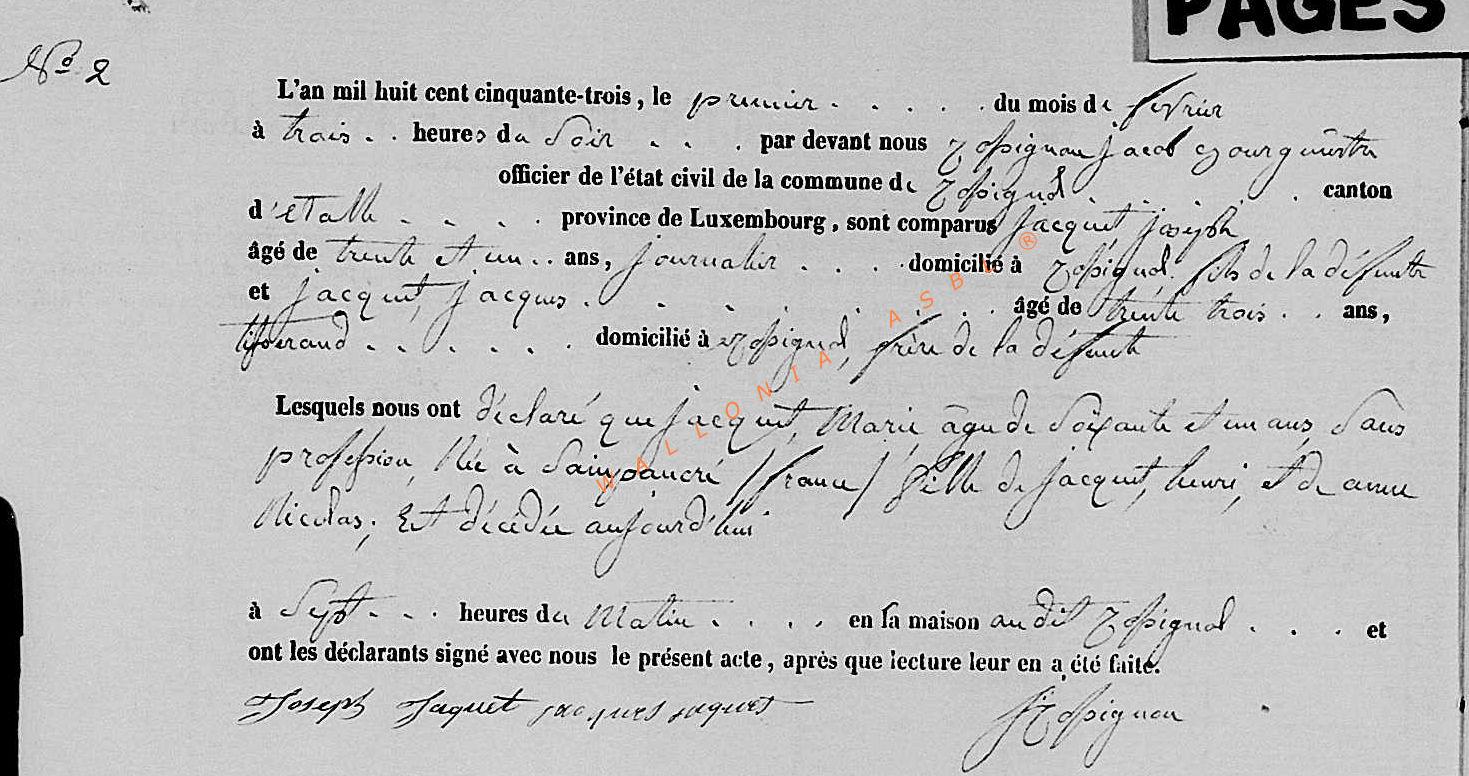 PAGES
No 2
L'an mil huit cent cinquante-trois, le premier . . . . . du mois de fevrier
à trois . . heures du Soir . . . par devant nous Rossignon Jacob Bourgmestre
officier de l'état civil de la commune de Rossignol . . . . . canton
d'etalle . . . . province de Luxembourg, sont comparus Jacquet Joseph
âgé de trente et un . . ans, journalier . . . . domicilié à Rossignol, fils de la défunte
et Jacquet, Jacques . . . . . . . . âgé de trente trois . . ans,
tisserand . . . . . . domicilié à Rossignol, frère de la défunte
Lesquels nous ont déclaré que Jacquet, Marie âgée de Soixante et un ans, Sans
profession, Née à Sainpancré /france/ fille de Jacquet, henri, et de anne
Nicolas, Est décédée aujourd'hui
à Sept . . . heures du Matin . . . . en sa maison au dit Rossignol . . . et
ont les déclarants signé avec nous le présent acte, après que lecture leur en a été faite.
Joseph Jaquet jacques jaquet JRossignon
WALLONIA ASBL ®